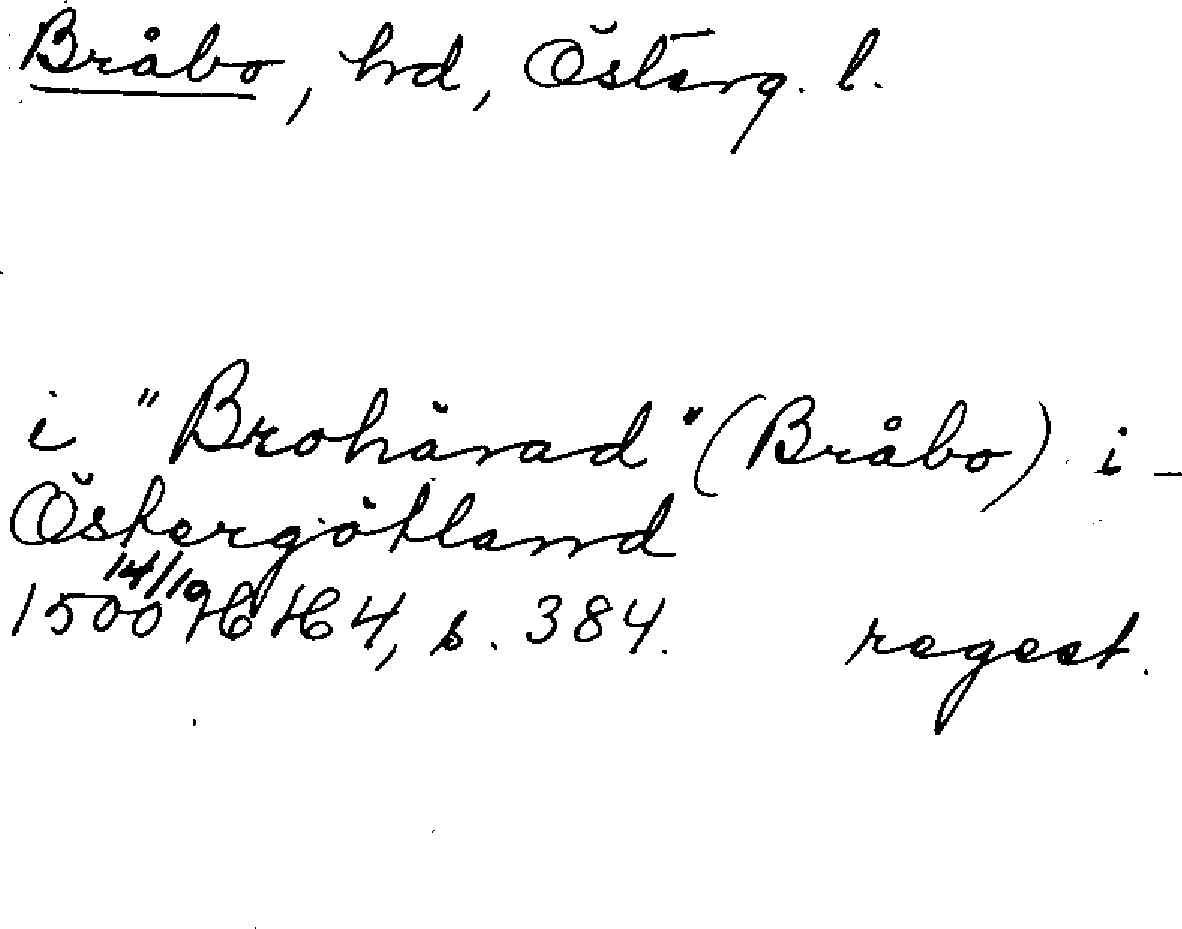 Bråbo, hd, Österg. l.
i "Brohärad" (Bråbo) i
Östergötland
1500 14/10 HH 4, s. 384. regest.